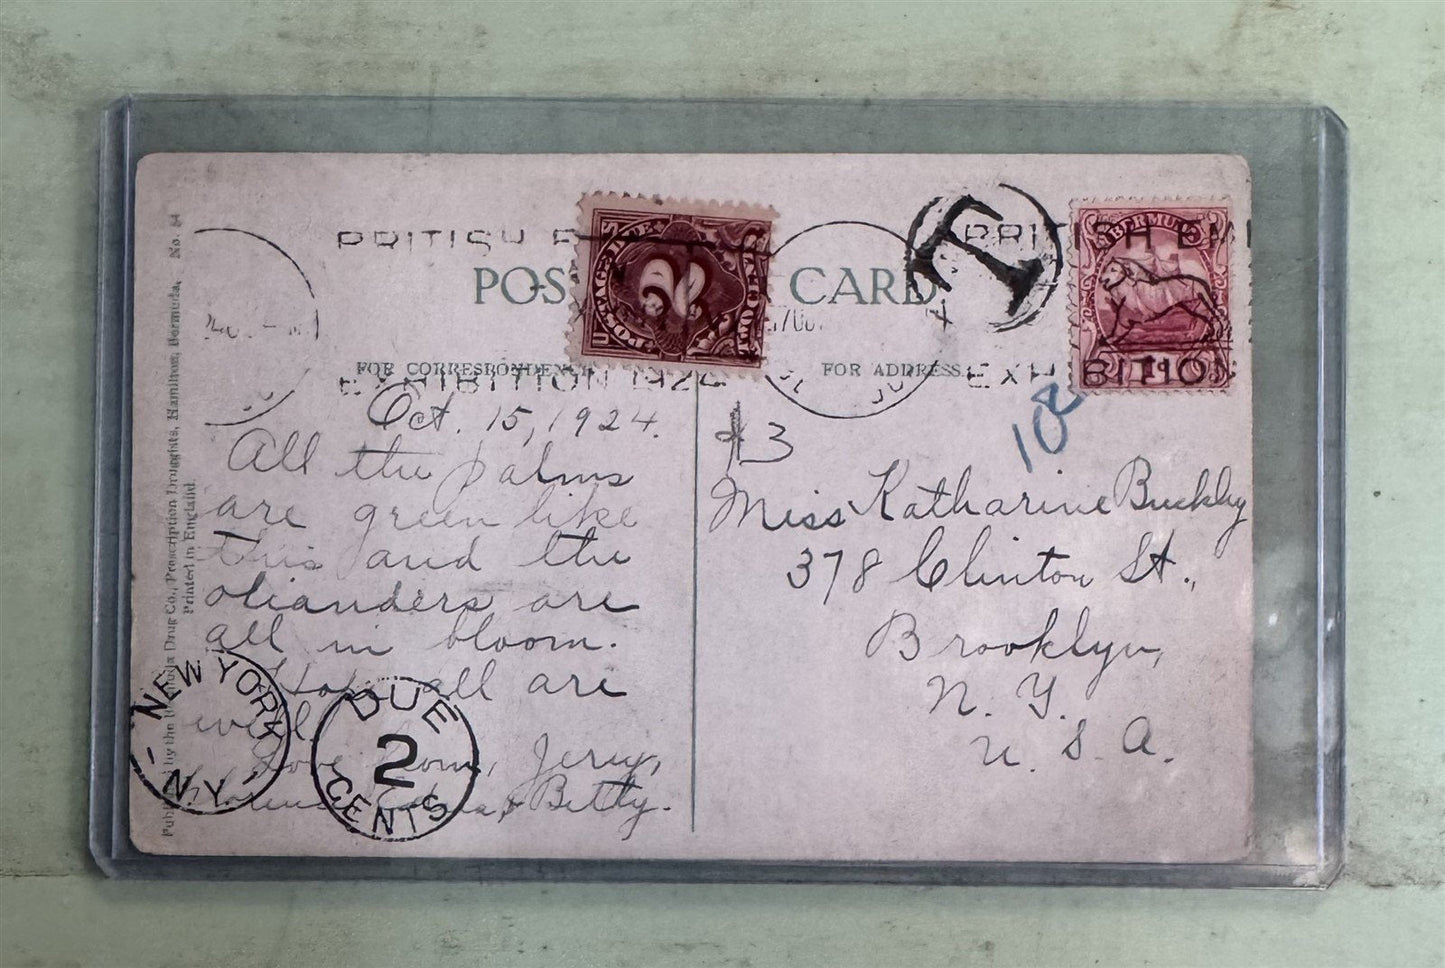 BRITISH E
POS CARD
BRITISH EMP
BERMUDA
POSTAGE DUE
2
TWO CENTS
T
FOR CORRESPONDENCE
FOR ADDRESS.
EXHIBITION 1924
EXHIBITION
10¢
Oct. 15, 1924.
All the palms
are green like
this and the
olianders are
all in bloom.
Hope all are
well.
Love from, Jerry,
& Betty.
#3
Miss Katharine Buckley
378 Clinton St.,
Brooklyn,
N. Y.
U. S. A.
NEW YORK
- N.Y. -
DUE
2
CENTS
Published by the Bermuda Drug Co., Prescription Druggists, Hamilton, Bermuda. No. 84
Printed in England.